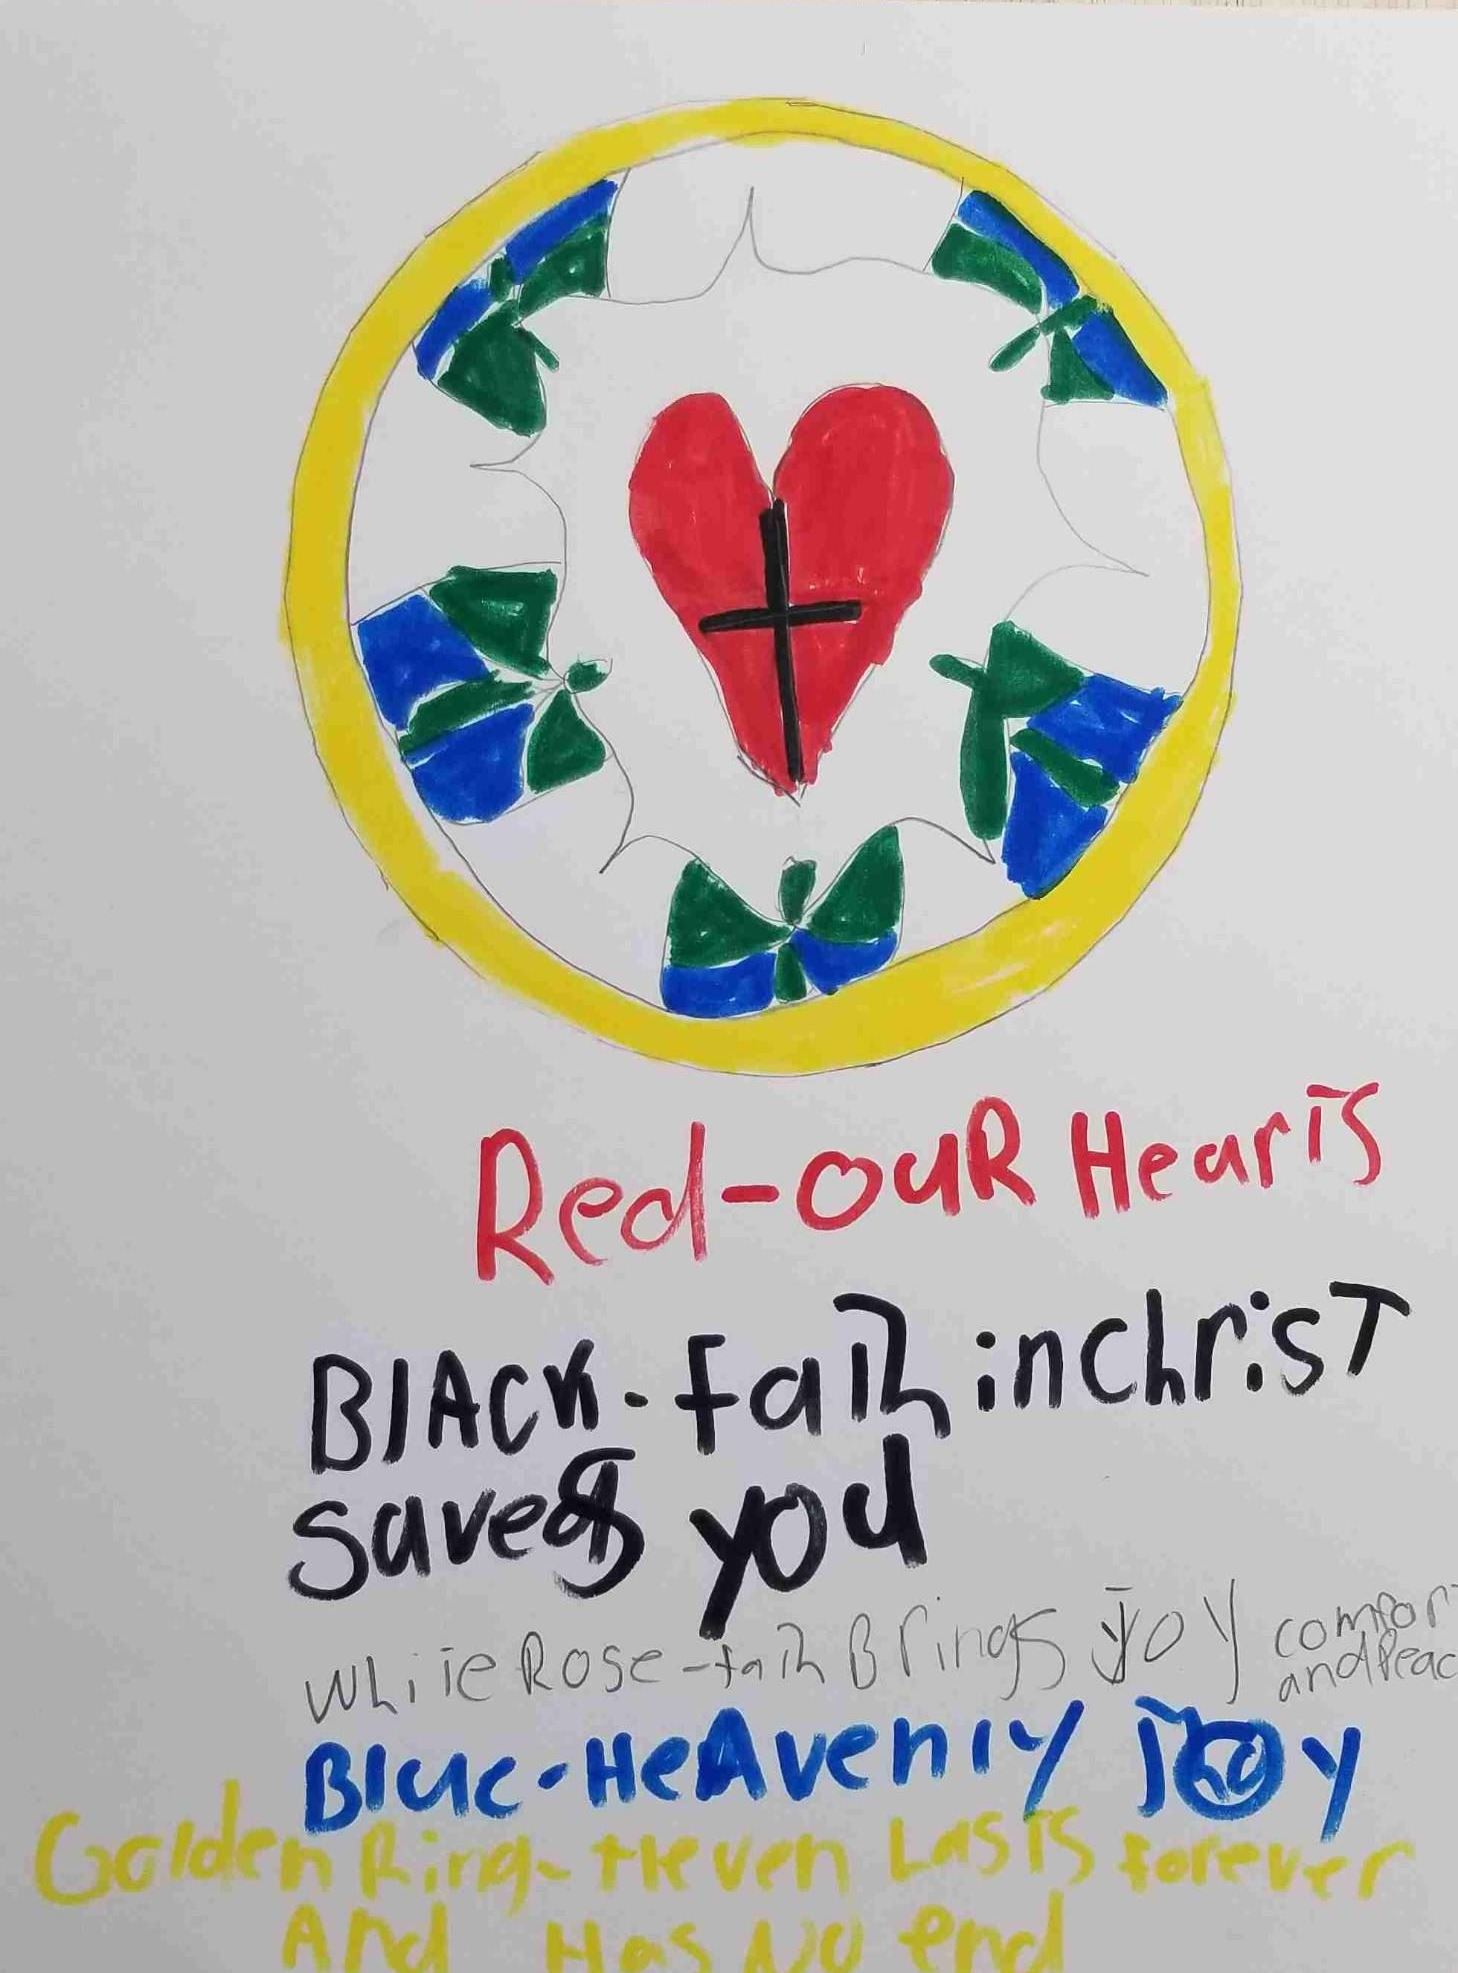 Red-ouR Hearts
BlAck-faith inchrisT
saves you
White Rose-faith Brings joy comfor
and Peac
Blue-HeAvenly Joy
Golden Ring-Heven Lasts forever
And Has No end